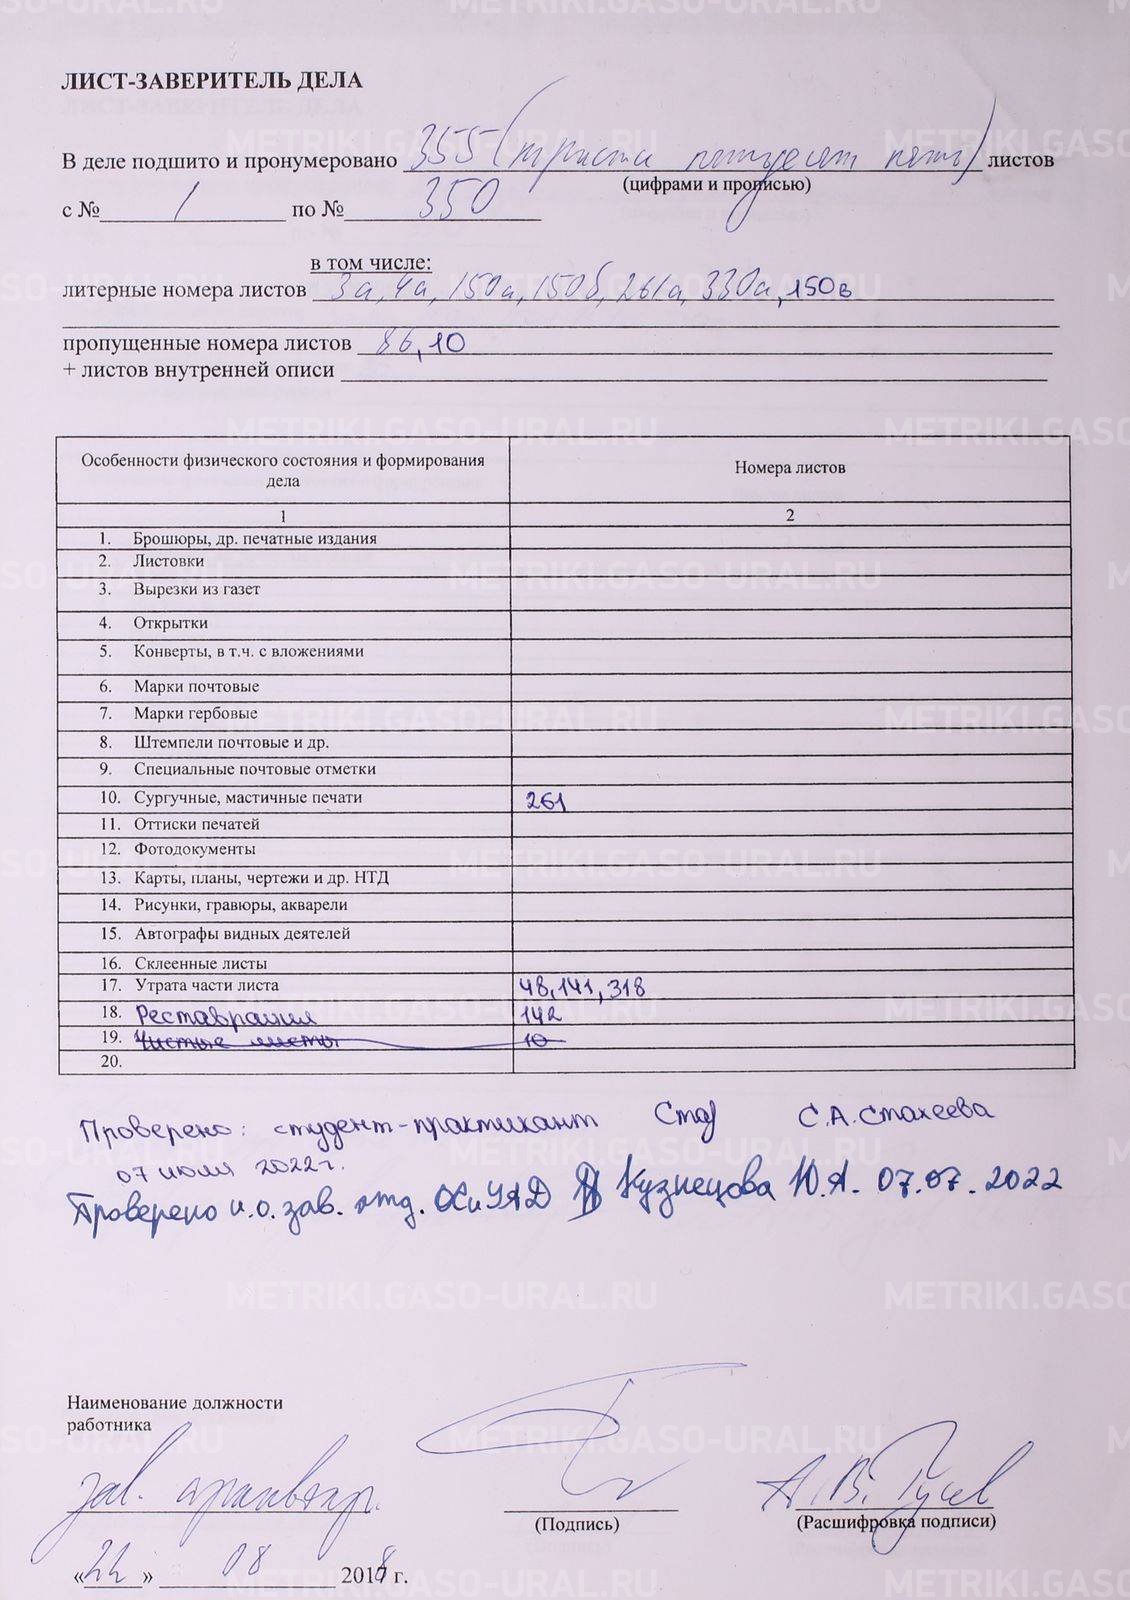 METRIKI.GASO-URAL.RU
ЛИСТ-ЗАВЕРИТЕЛЬ ДЕЛА
В деле подшито и пронумеровано 355 (триста пятьдесят пять) листов
(цифрами и прописью)
с № 1 по № 350
в том числе:
литерные номера листов 3а, 4а, 150а, 150б, 261а, 330а, 150в
пропущенные номера листов 86, 10
+ листов внутренней описи
Особенности физического состояния и формирования дела Номера листов
1 2
1. Брошюры, др. печатные издания
2. Листовки
3. Вырезки из газет
4. Открытки
5. Конверты, в т.ч. с вложениями
6. Марки почтовые
7. Марки гербовые
8. Штемпели почтовые и др.
9. Специальные почтовые отметки
10. Сургучные, мастичные печати 261
11. Оттиски печатей
12. Фотодокументы
13. Карты, планы, чертежи и др. НТД
14. Рисунки, гравюры, акварели
15. Автографы видных деятелей
16. Склеенные листы
17. Утрата части листа 48, 141, 318
18. Реставрация 142
19. Чистые листы 10
20.
Проверено: студент-практикант С.А. Стахеева
07 июля 2022г.
Проверено и.о. зав. отд. ОХиУАД Кузнецова Ю.А. 07.07.2022
Наименование должности
работника
зав. архивохр. А.В. Гусев
(Подпись) (Расшифровка подписи)
«22» 08 2018 г.